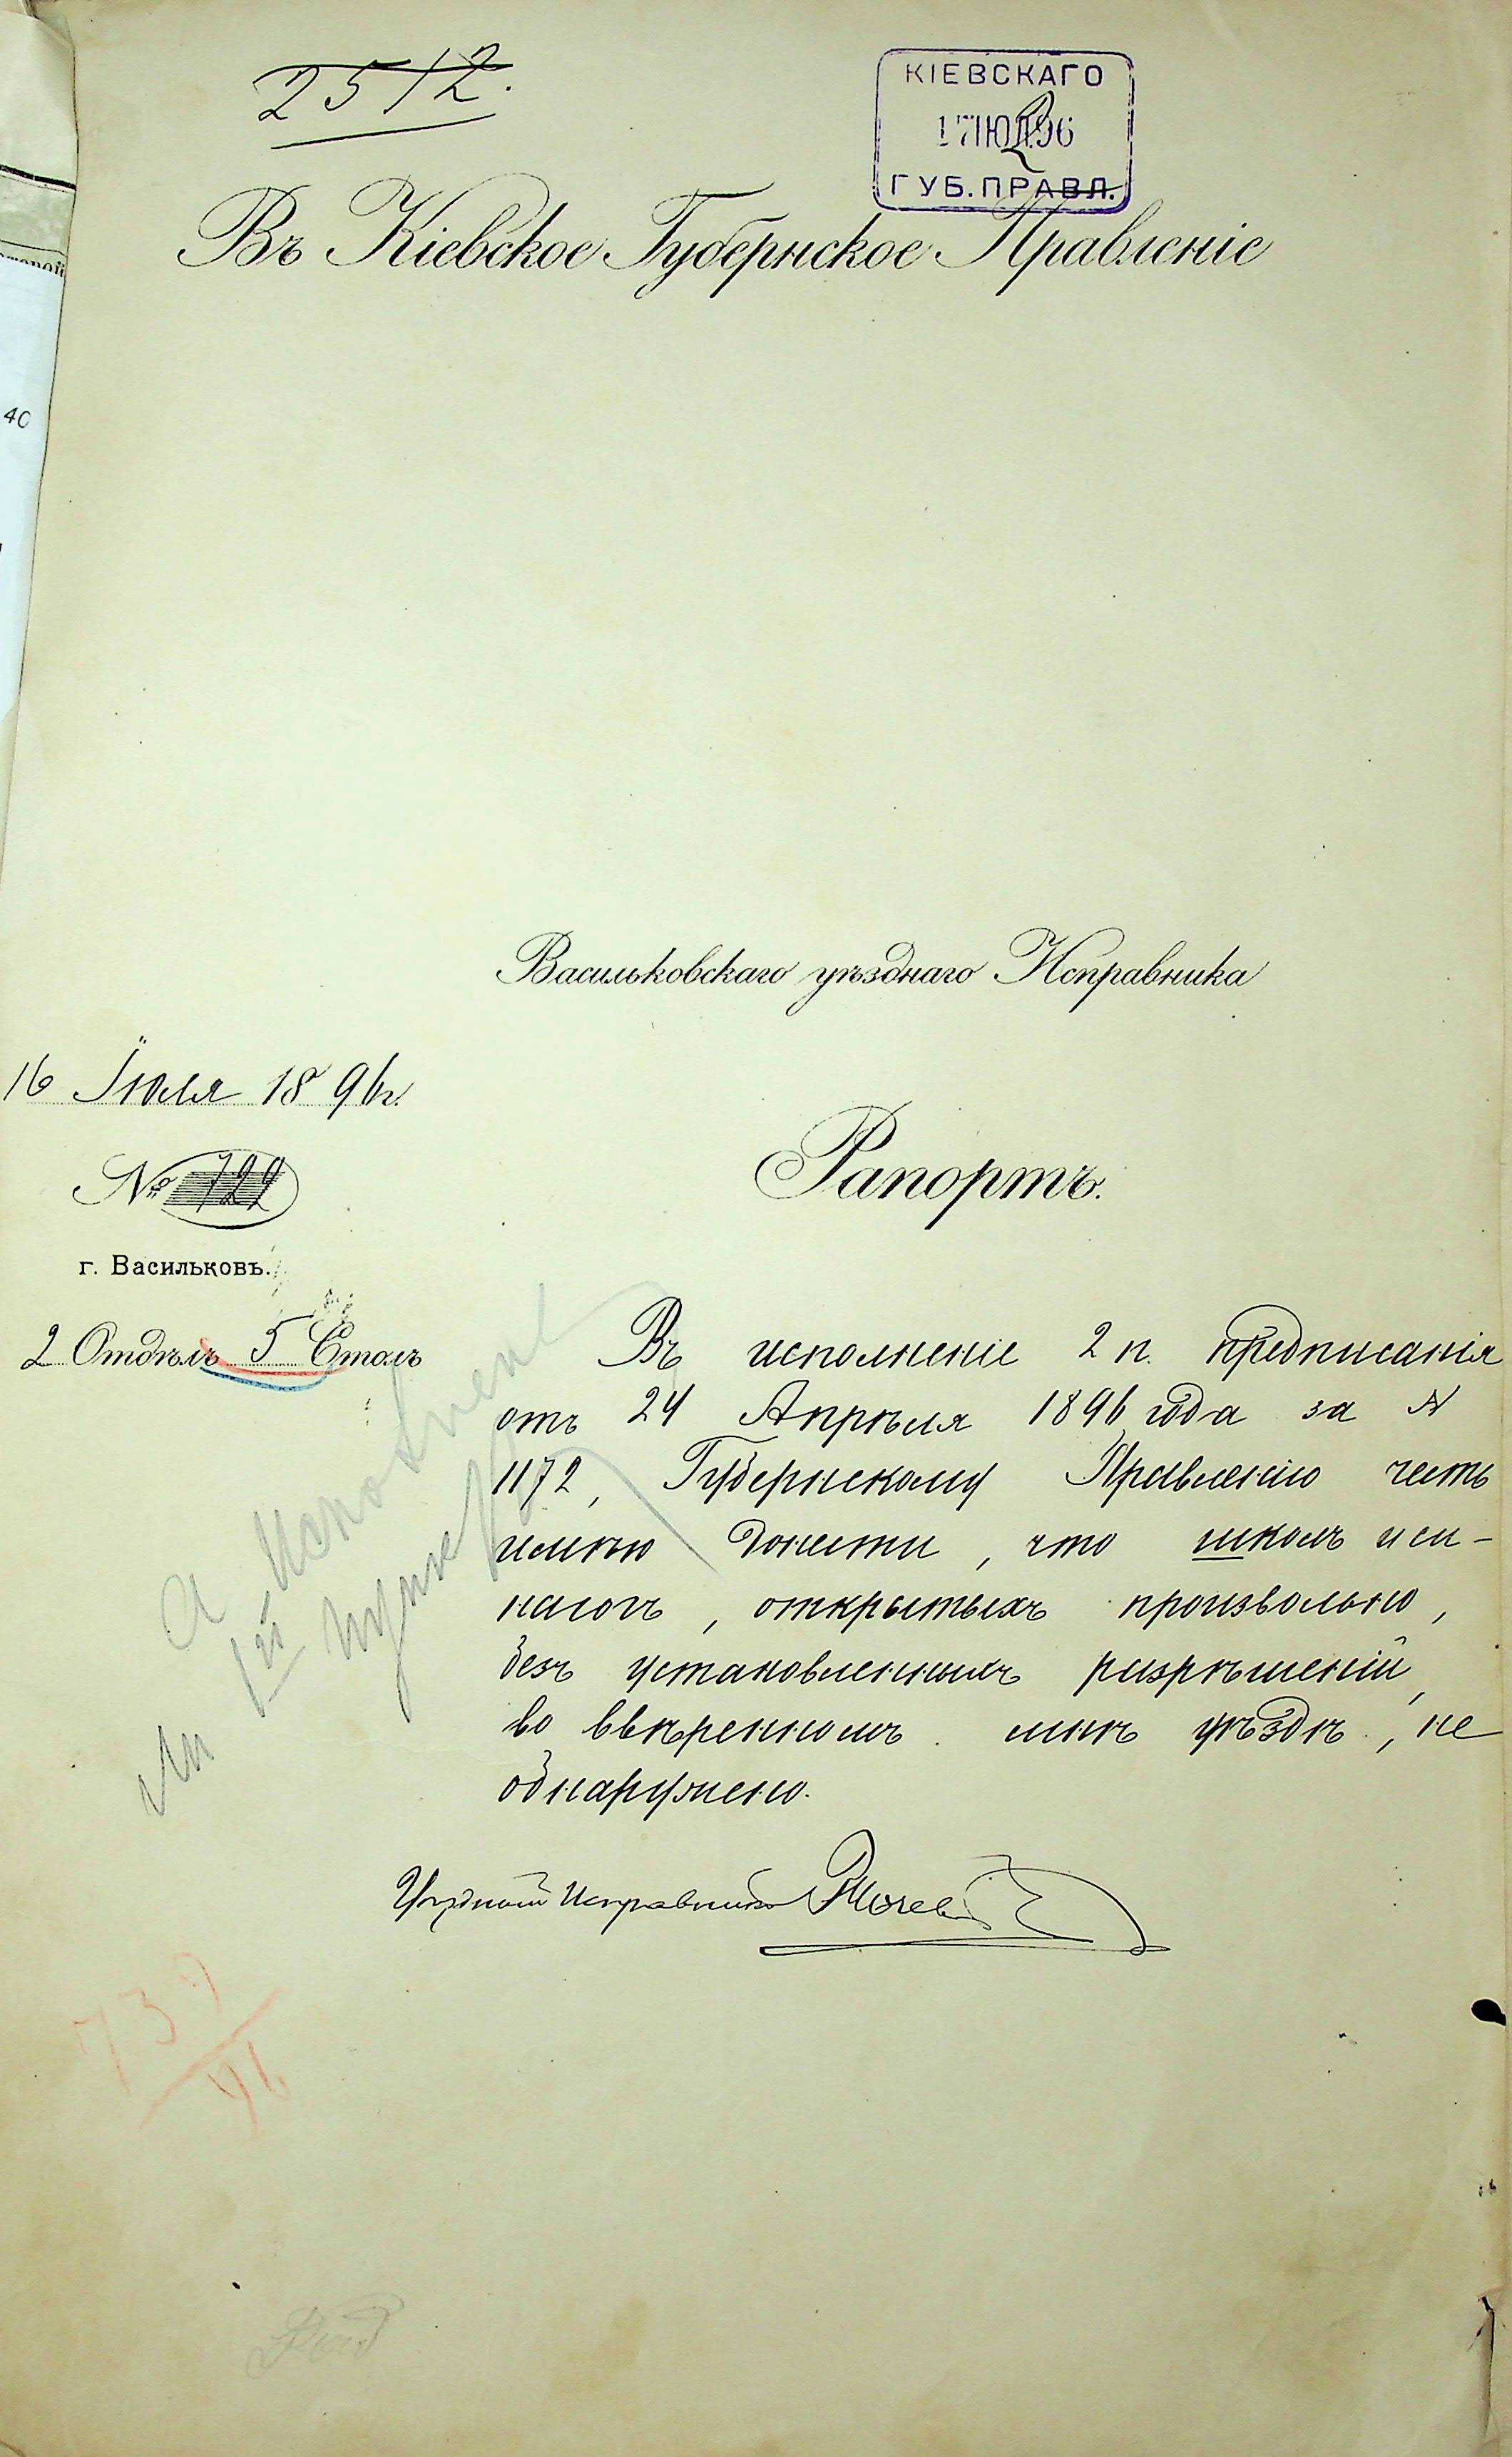 2512.
КІЕВСКАГО
17 ІЮЛ 96
ГУБ. ПРАВЛ.
Въ Кіевское Губернское Правленіе
40
Васильковскаго уѣзднаго Исправника
16 Іюля 1896 г.
№ 722
г. Васильковъ.
2 Отдѣлъ 5 Столъ
Рапортъ.
Въ исполненіе 2 п. предписанія
отъ 24 Апрѣля 1896 года за №
1172, Губернскому Правленію честь
имѣю донести, что школъ и си-
нагогъ, открытыхъ произвольно,
безъ установленныхъ разрѣшеній,
во ввѣренномъ мнѣ уѣздѣ, не
обнаружено.
Уѣздный Исправникъ
А исполненіе
1й пункт
739
96